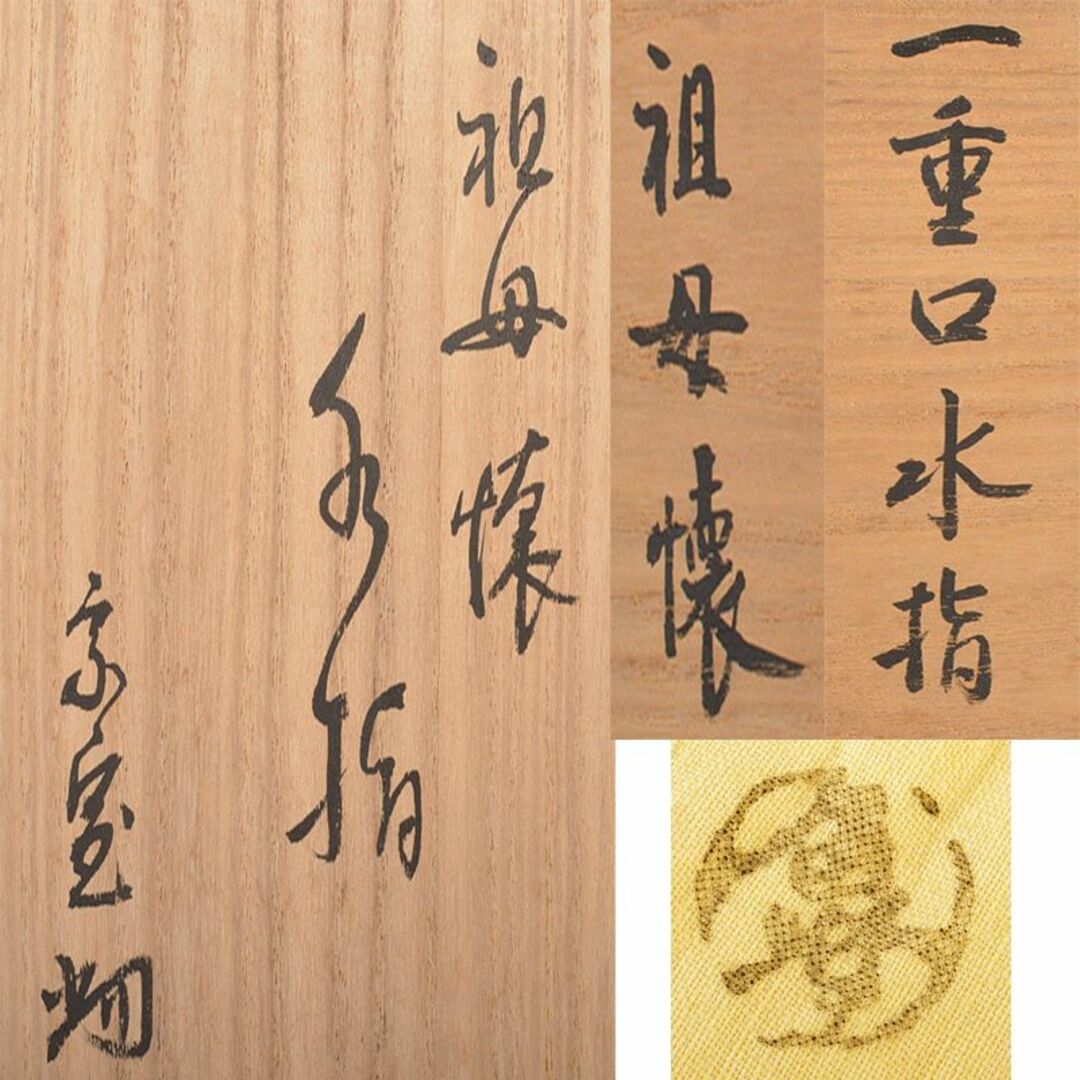 一重口水指
祖母懐
祖母懐
水指
宗室